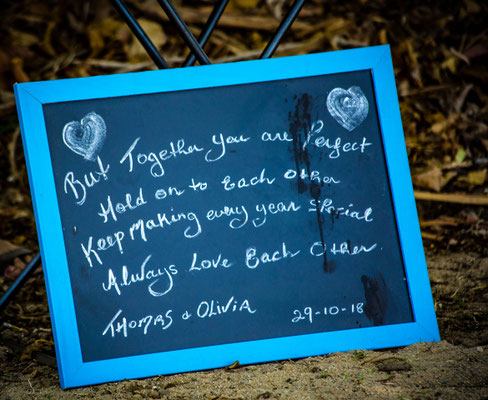 But Together you are Perfect
Hold on to Each other
Keep Making every year special
Always Love Each Other.
Thomas & Olivia 29-10-18